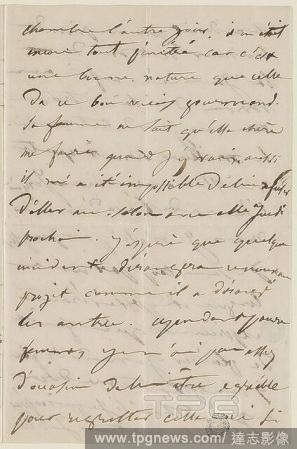 chambre l'autre jour. il m'était
encore tout pénétré car c'est
une bonne nature que celle
de ce bon vieux gourmand.
Sa femme ne sait qu'elle chère
me faire quand j'y vais, aussi
il m'a été impossible de lui refuser
d'aller au salon avec elle jeudi
prochain. j'espère que quelque
incident dérangera ce nouveau
projet comme il a dérangé
les autres. cependant pauvre
femme je n'ai pas assez
d'occasion de lui être agréable
pour regretter cette
TPG
www.tpgnews.com | 達志影像